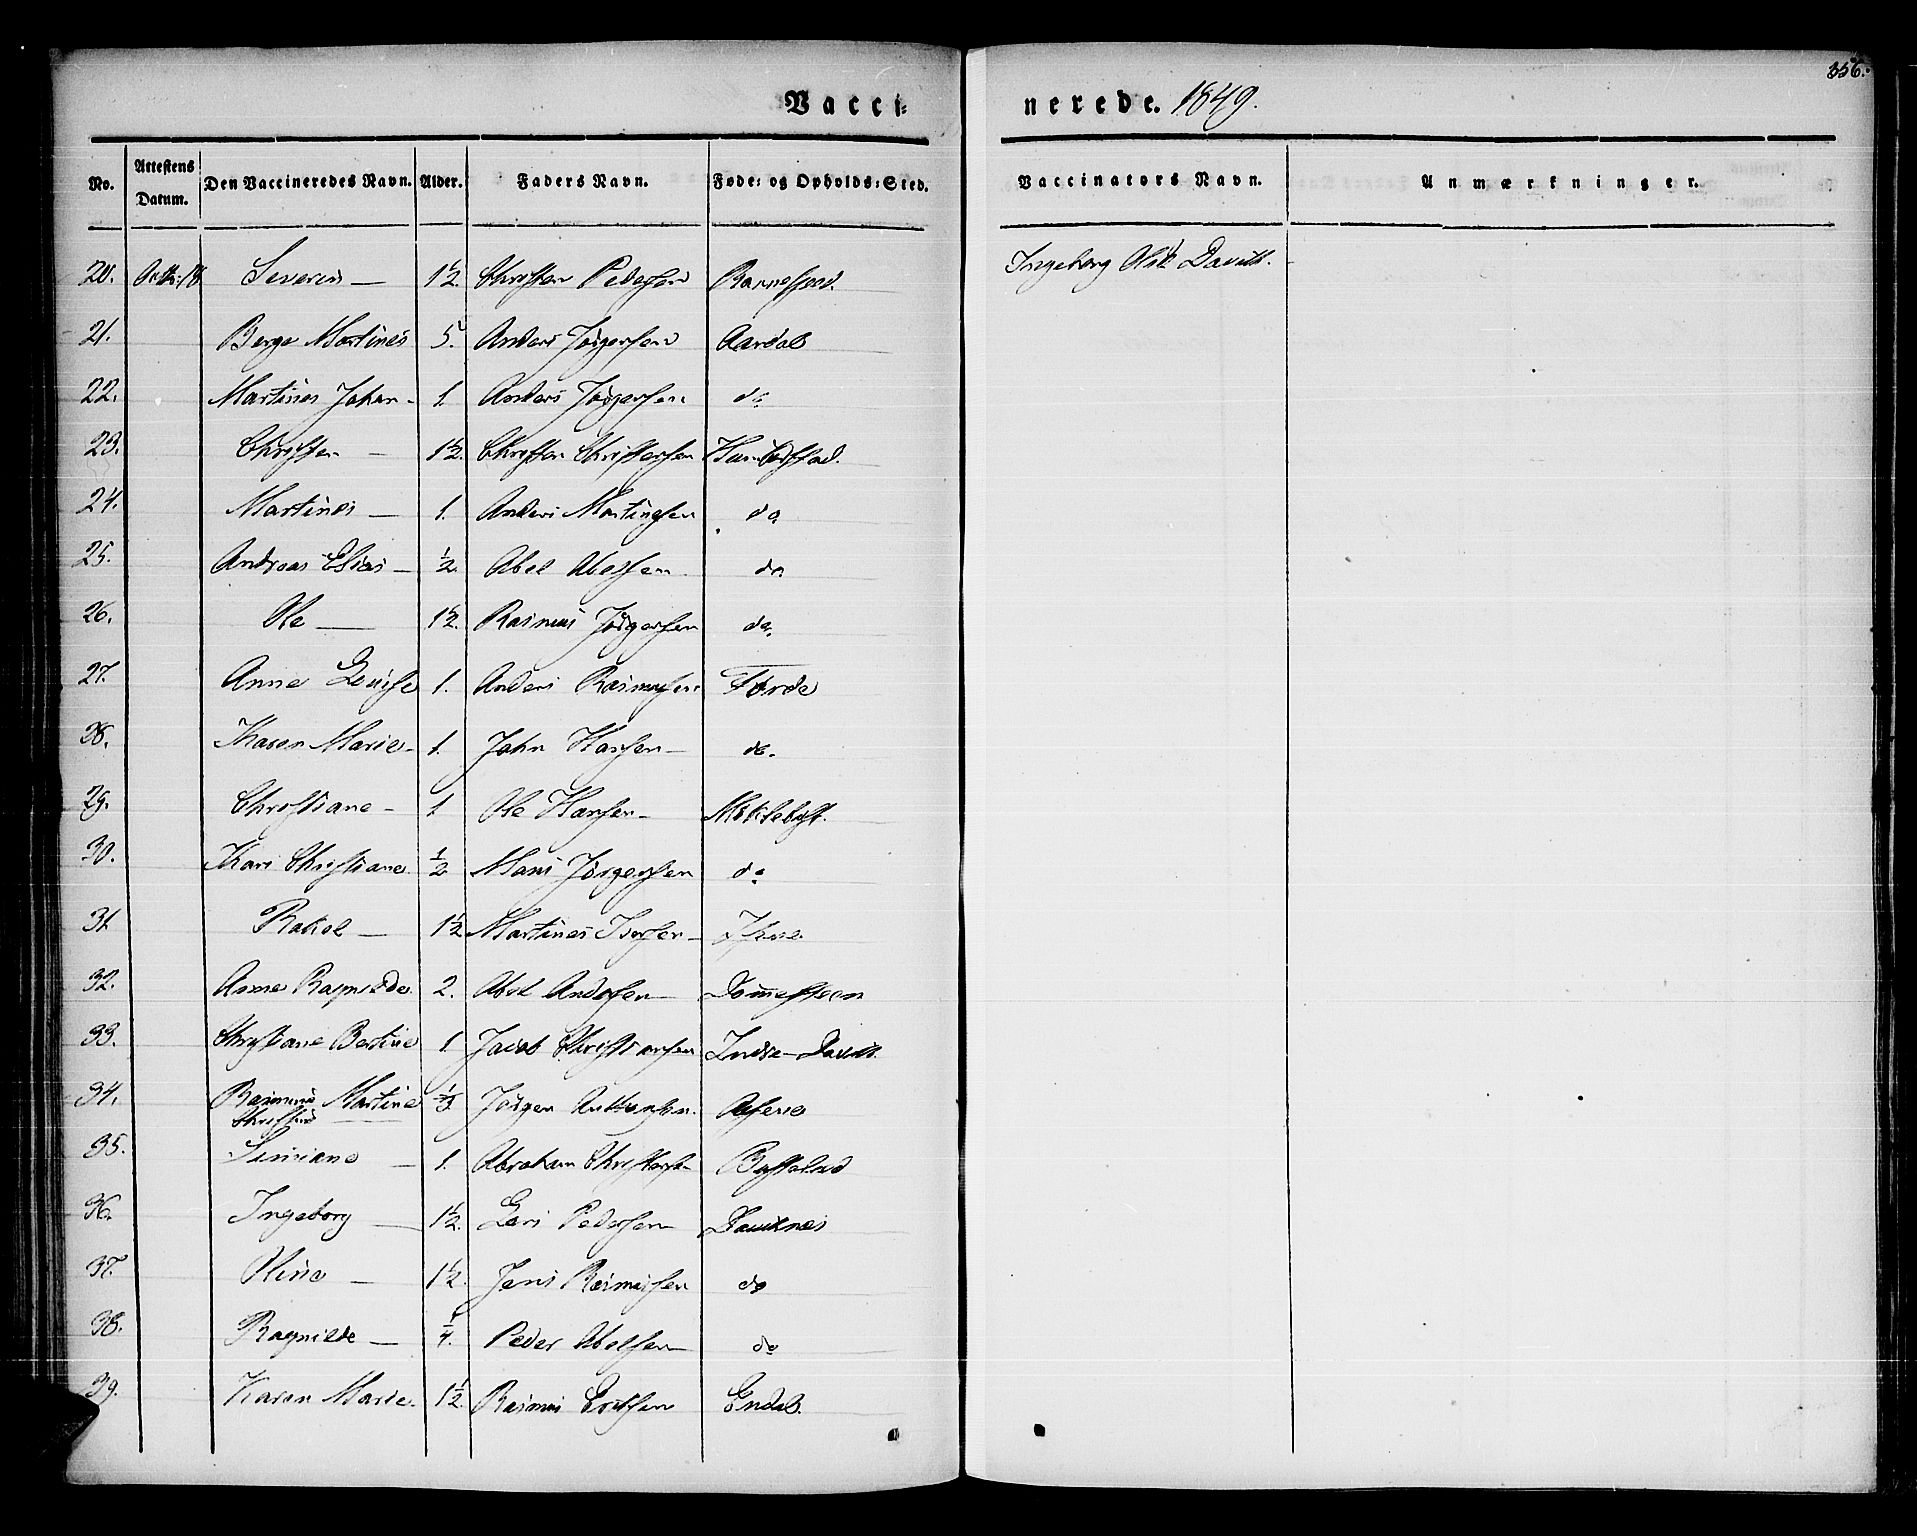 356.
Vacci-
nerede. 1849.
No. Attestens Datum. Den Vaccineredes Navn. Alder. Faders Navn. Føde- og Opholds-Sted.
Vaccinators Navn. Anmærkninger.
20. Severin — 1½ Christen Pedersen
Ingeborg Davidt.
21. Berge Martines 5. Anders Jörgensen Aardal
22. Martines Johan - 1. Anders Jörgensen do
23. Christen - 1½. Christen Christensen
24. Martines — 1. Anders Martinesen do
25. Andreas Elias — ½. Abel Abelsen do.
26. Ole — 1½. Rasmus Jörgensen do.
27. Anne Lovise 1. Anders Rasmusen Förde
28. Karen Marie - 1. John Hansen — do.
29. Christiane - 1. Ole Hansen - Möklebust.
30. Kari Christiane ½ Mons Jörgensen do
31. Rakel — 1½ Martines Iversen -
32. Anne Ragnilde 2. Abel Andersen —
33. Christiane Bertine 1. Jacob Christiansen Indre-
34. Rasmine Martine ⅓ Jörgen
35. — 1. Abraham Christensen
36. Ingeborg — 1½. Lars Pedersen
37. Oline — 1½. Jens Rasmusen do
38. Ragnilde — ¼. Peder Abelsen do
39. Karen Marie. 1½. Rasmus Endal.